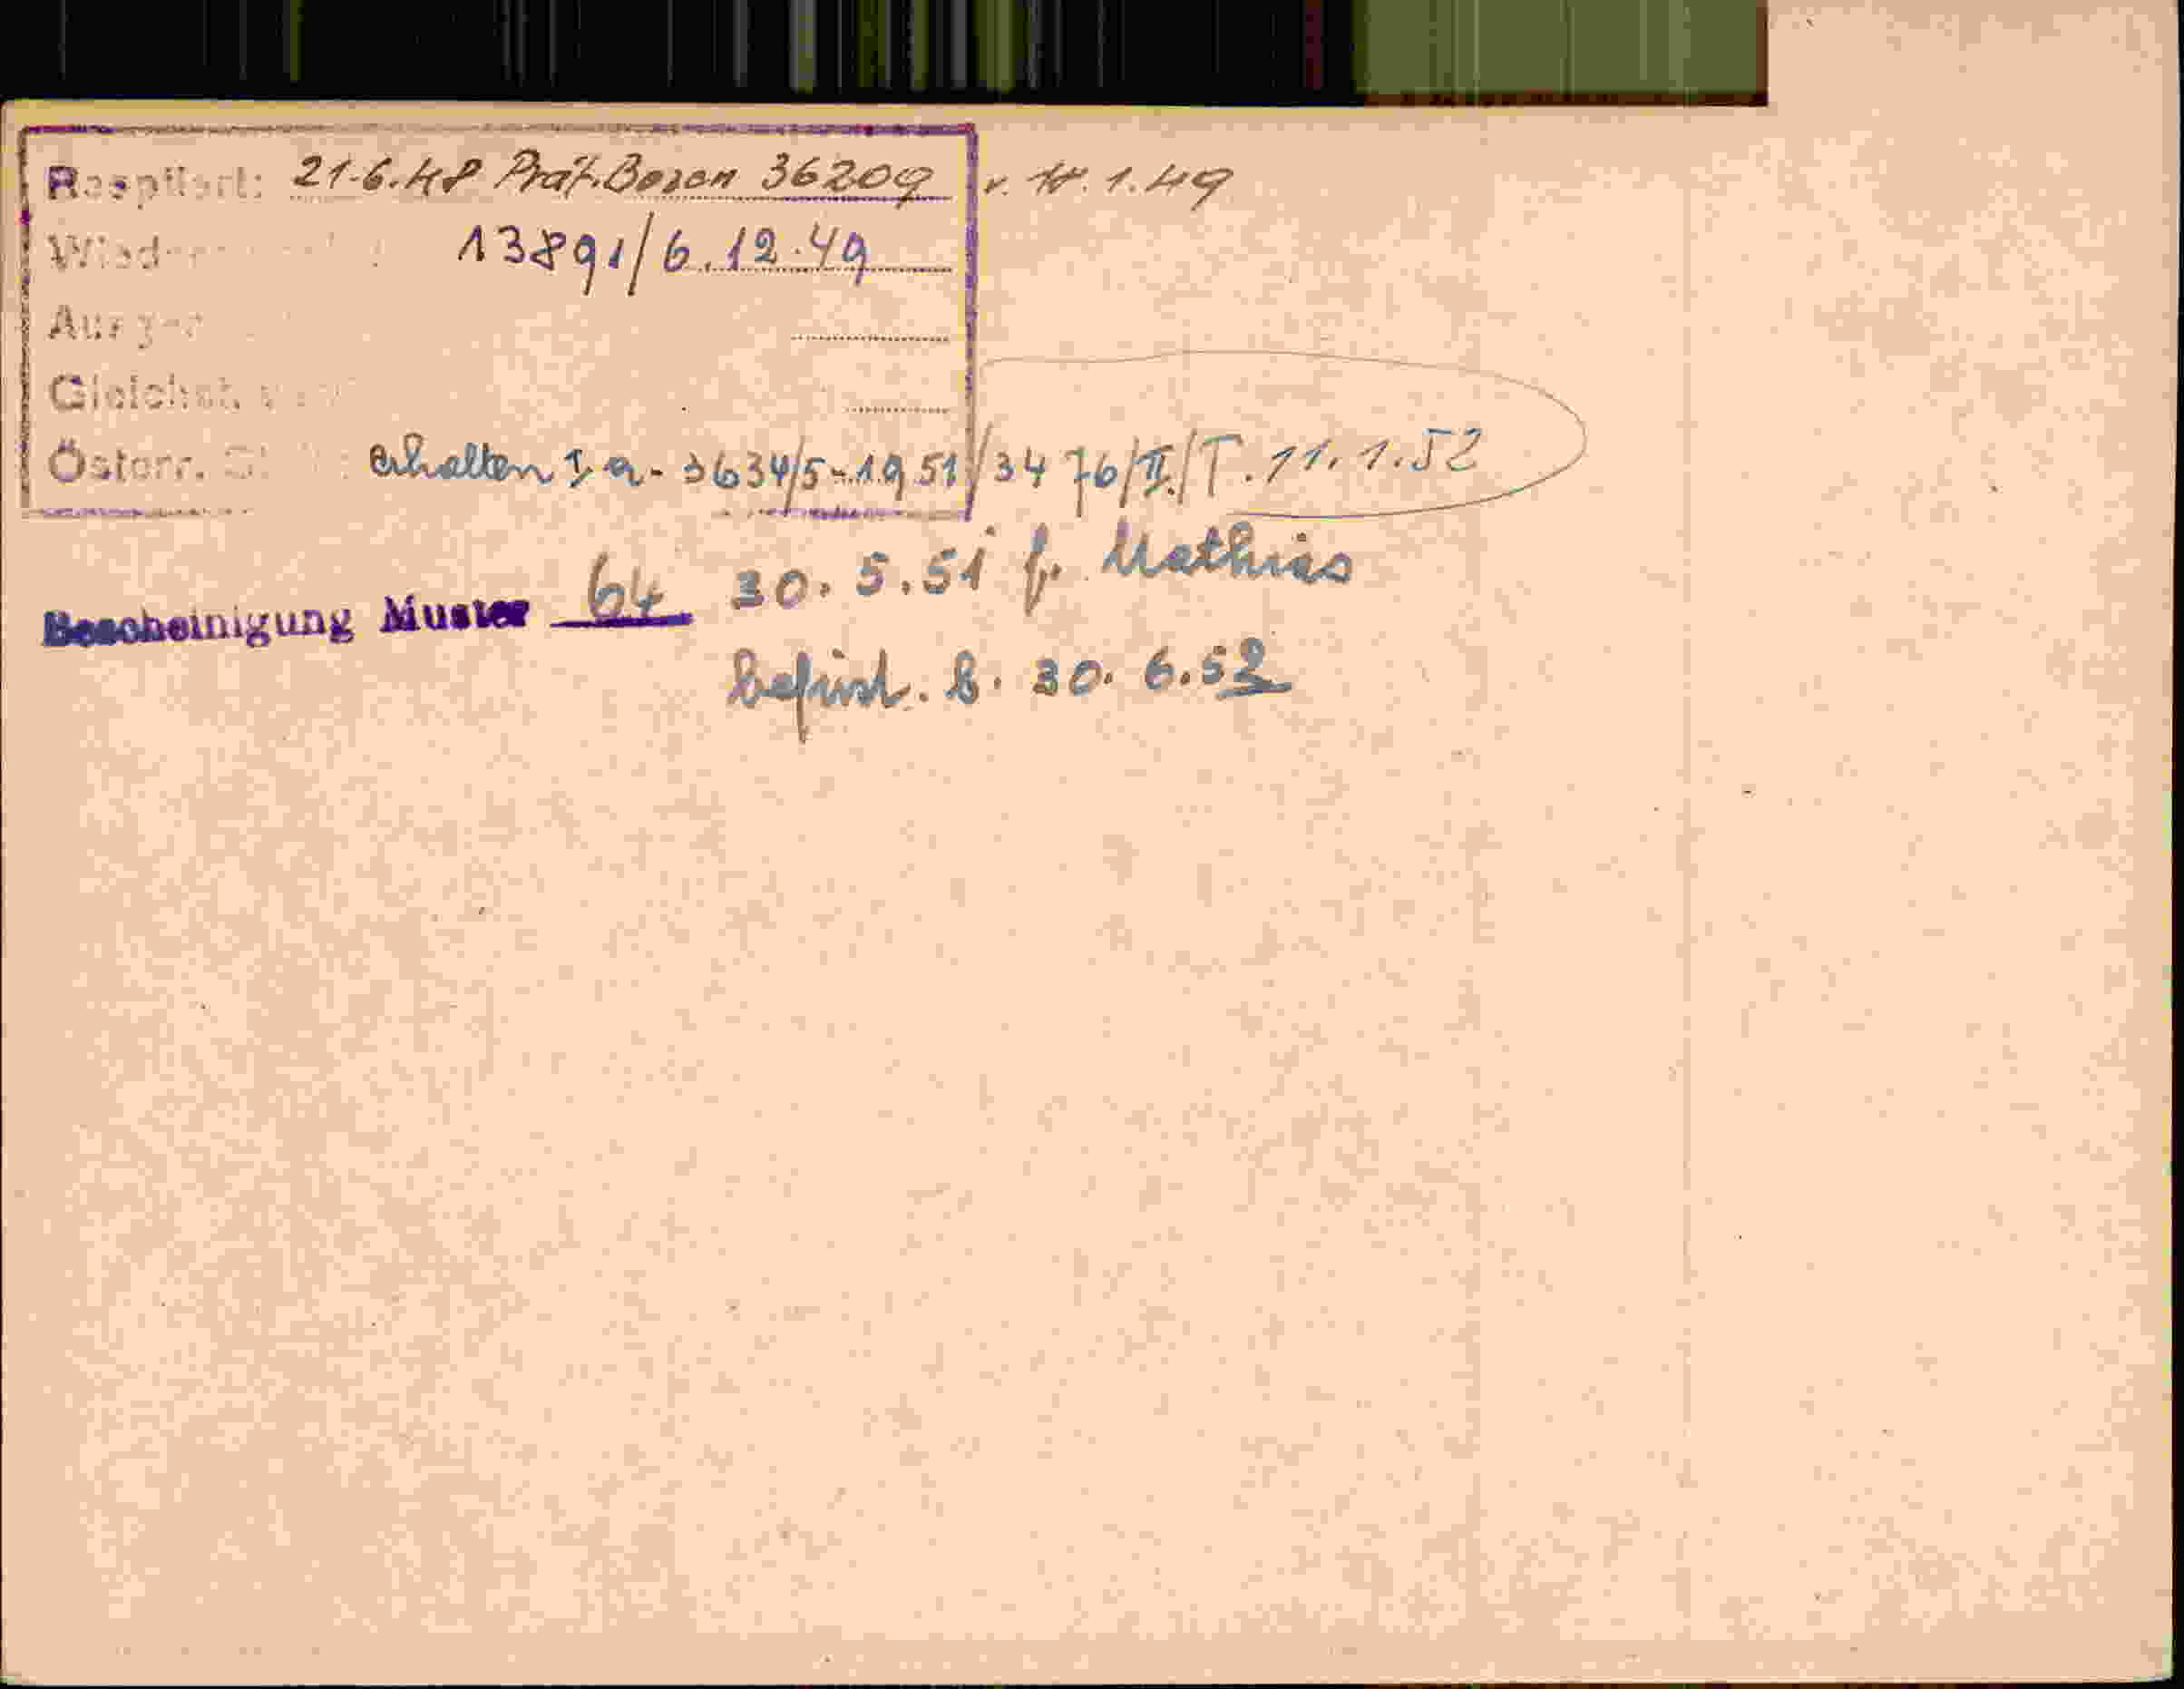 Reoptiert: 21.6.48 Präf. Bozen 36209 v. 1.49
13891/6.12.49
Österr. erhalten I a - 3634/5-1951/3476/II/T. 11.1.52
Bescheinigung Muster 64 30.5.51 f. Mathias
befrist. b. 30.6.52